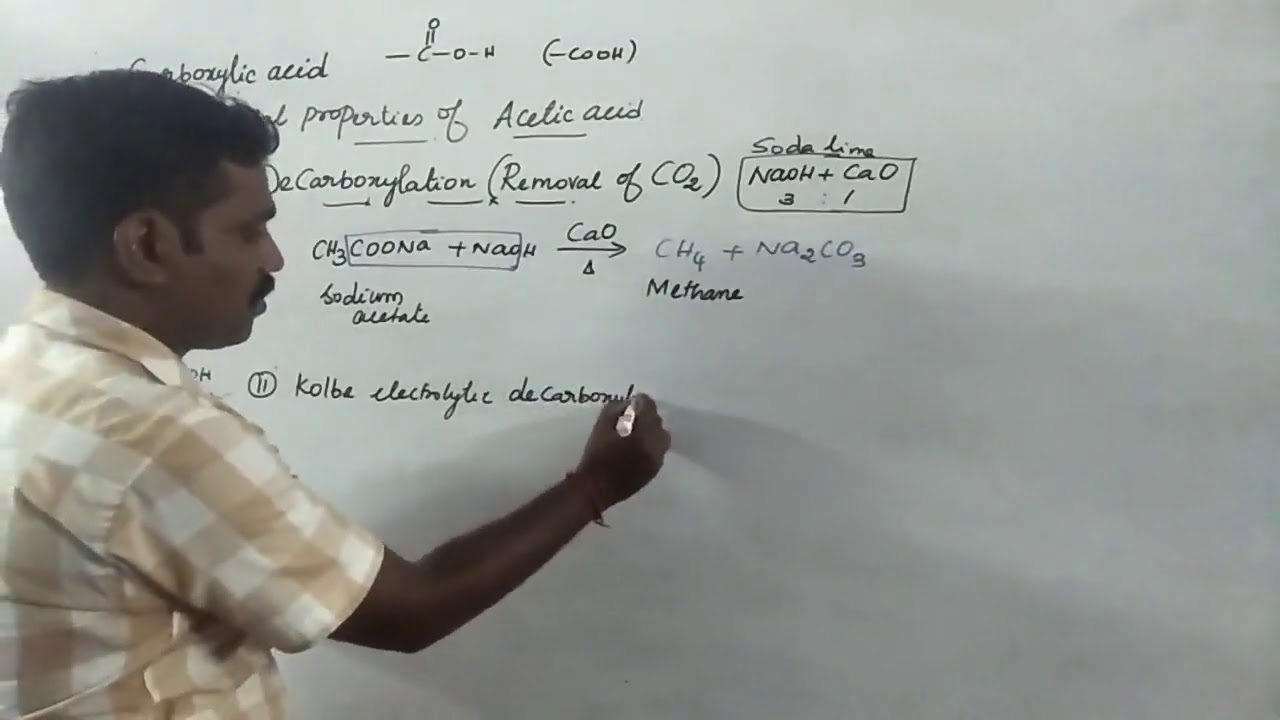 Carboxylic acid — C(=O)–O–H (–COOH)
properties of Acetic acid
DeCarboxylation (Removal of CO2)
Soda lime
NaOH + CaO
3 : 1
CH3COONa + NaOH —CaO/Δ→ CH4 + Na2CO3
Sodium acetate
Methane
OH
II Kolbe electrolytic decarboxyl